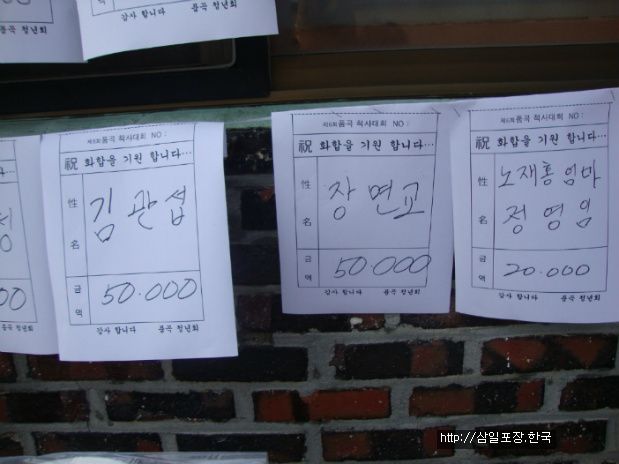 감사 합니다 품곡 청년회
제6회품곡 척사대회 NO :
祝 화합을 기원 합니다…
性名
김관섭
금액
50.000
감사 합니다 품곡 청년회
제6회품곡 척사대회 NO :
祝 화합을 기원 합니다…
性名
장면교
금액
50.000
감사 합니다 품곡 청년회
제6회품곡 척사대회 NO :
祝 화합을 기원 합니다…
性名
노재홍엄마
정영임
금액
20.000
감사 합니다 품곡 청년회
합니다…
00
품곡 청년회
http://삼일포장.한국